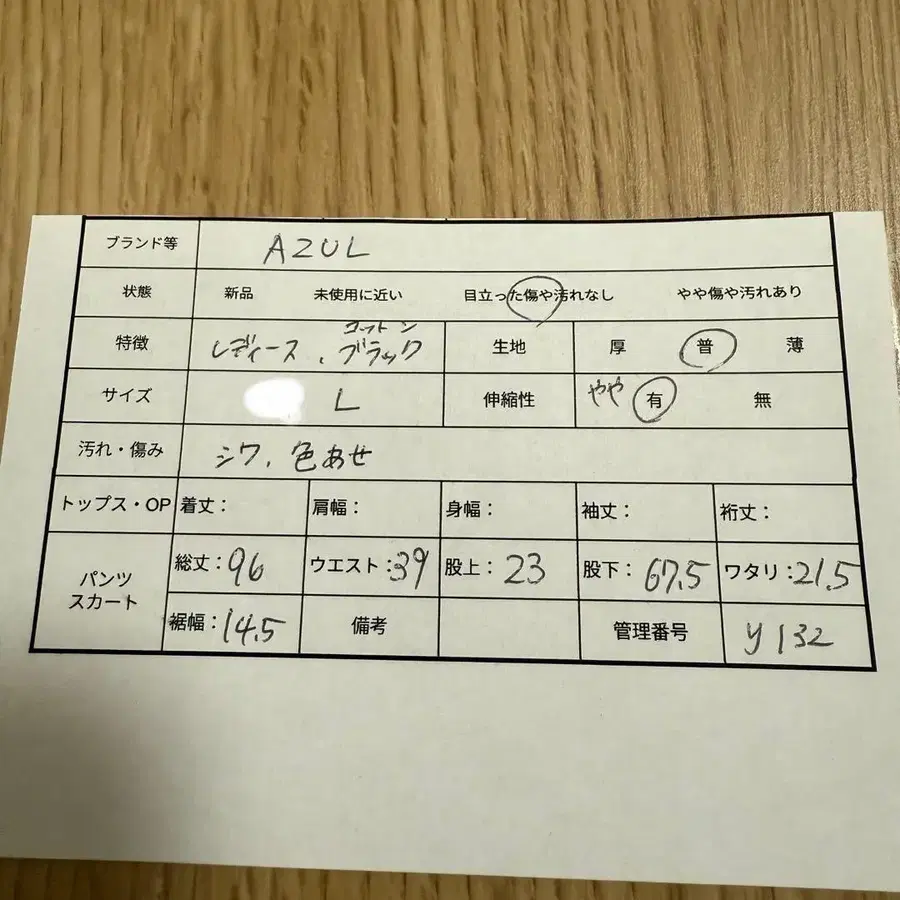 ブランド等 AZUL
状態 新品 未使用に近い 目立った傷や汚れなし やや傷や汚れあり
特徴 レディース、コットン ブラック 生地 厚 普 薄
サイズ L 伸縮性 やや 有 無
汚れ・傷み シワ、色あせ
トップス・OP 着丈: 肩幅: 身幅: 袖丈: 裄丈:
パンツ スカート 総丈:96 ウエスト:39 股上:23 股下:67.5 ワタリ:21.5
裾幅:14.5 備考 管理番号 y132